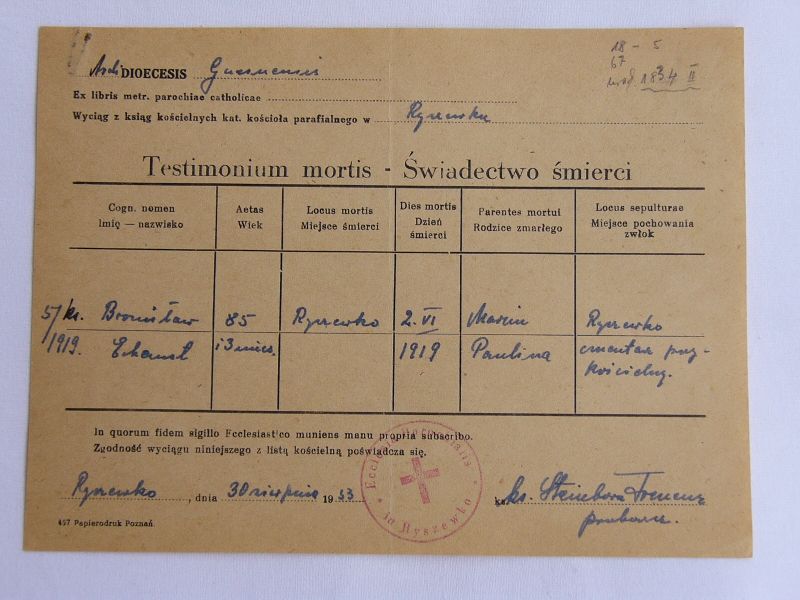 18 - 5
67
1834 II
Archi DIOECESIS Gnesnensis
Ex libris metr. parochiae catholicae
Wyciąg z ksiąg kościelnych kat. kościoła parafialnego w Ryszewku
Testimonium mortis - Świadectwo śmierci
Cogn. nomen
Imię — nazwisko
Aetas
Wiek
Locus mortis
Miejsce śmierci
Dies mortis
Dzień
śmierci
Parentes mortui
Rodzice zmarłego
Locus sepulturae
Miejsce pochowania
zwłok
5/1919.
ks. Bronisław
Echaust
85
i 3 mies.
Ryszewko
2. VI
1919
Marcin
Paulina
Ryszewko
cmentarz przy-
kościelny.
In quorum fidem sigillo Ecclesiastico muniens manu propria subscribo.
Zgodność wyciągu niniejszego z listą kościelną poświadcza się.
Ryszewko, dnia 30 sierpnia 1953
ks. ks.
proboszcz.
Ecclesia Parochialis
in Ryszewko
497 Papierodruk Poznań.